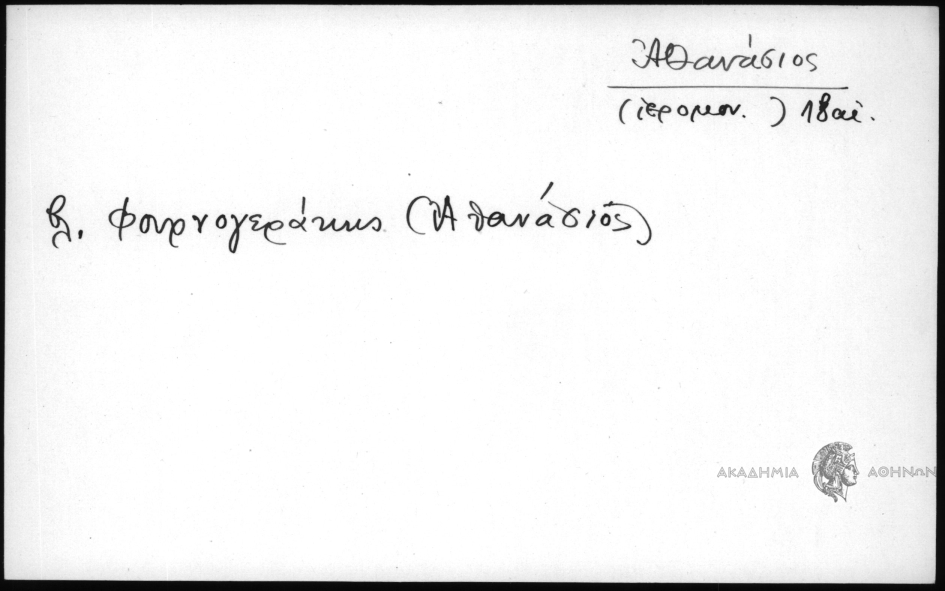 Ἀθανάσιος
(ἱερομον. ) 18 αἰ.
βλ. Φουρνογεράκης (Ἀθανάσιος)
ΑΚΑΔΗΜΙΑ ΑΘΗΝΩΝ